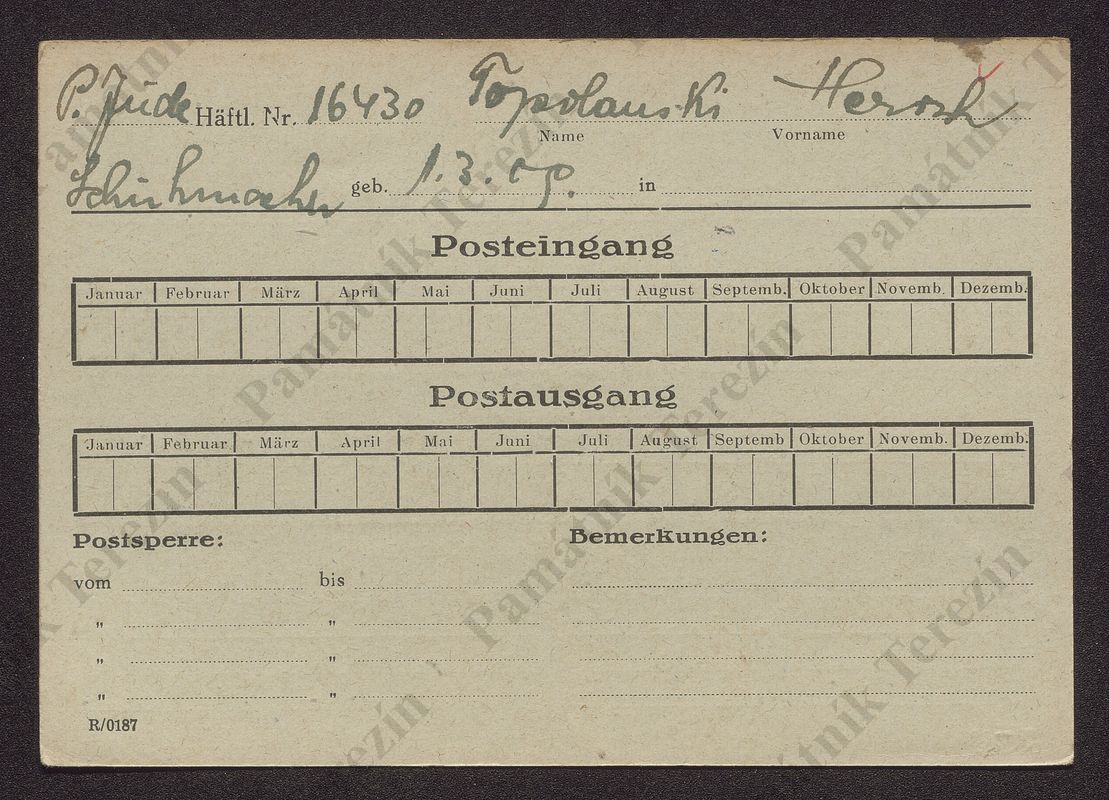 P. Jude Häftl. Nr. 16430 Topolanski Hersch
Name Vorname
Schuhmacher geb. 1.3.09. in
Posteingang
Januar Februar März April Mai Juni Juli August Septemb. Oktober Novemb. Dezemb.
Postausgang
Januar Februar März April Mai Juni Juli August Septemb Oktober Novemb. Dezemb.
Postsperre: Bemerkungen:
vom bis
" "
" "
" "
R/0187
Památník Terezín